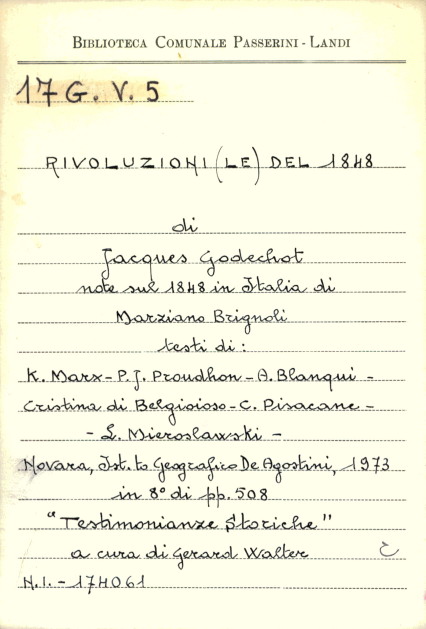 BIBLIOTECA COMUNALE PASSERINI - LANDI
17 G. V. 5
RIVOLUZIONI (LE) DEL 1848
di
Jacques Godechot
note sul 1848 in Italia di
Marziano Brignoli
testi di:
K. Marx - P. J. Proudhon - A. Blanqui -
Cristina di Belgioioso - C. Pisacane -
- L. Mieroslawski -
Novara, Ist.to Geografico De Agostini, 1973
in 8° di pp. 508
"Testimonianze Storiche"
a cura di Gerard Walter
N.I. - 174061